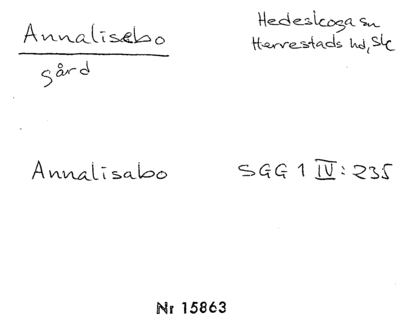 Annalisebo
Hedeskoga sn
Herrestads hd, Sk
gård
Annalisabo
SGG 1 IV: 235
Nr 15863